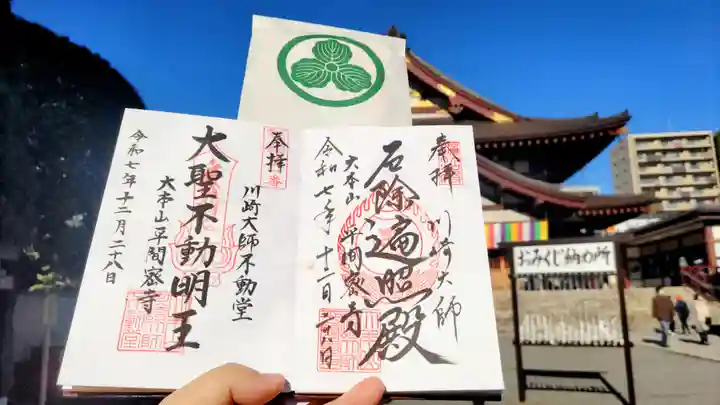 奉拝
川崎大師
厄除遍照殿
大本山平間寺
令和七年十二月二十八日
奉拝
川崎大師不動堂
大聖不動明王
大本山平間寺
令和七年十二月二十八日
おみくじ納め所